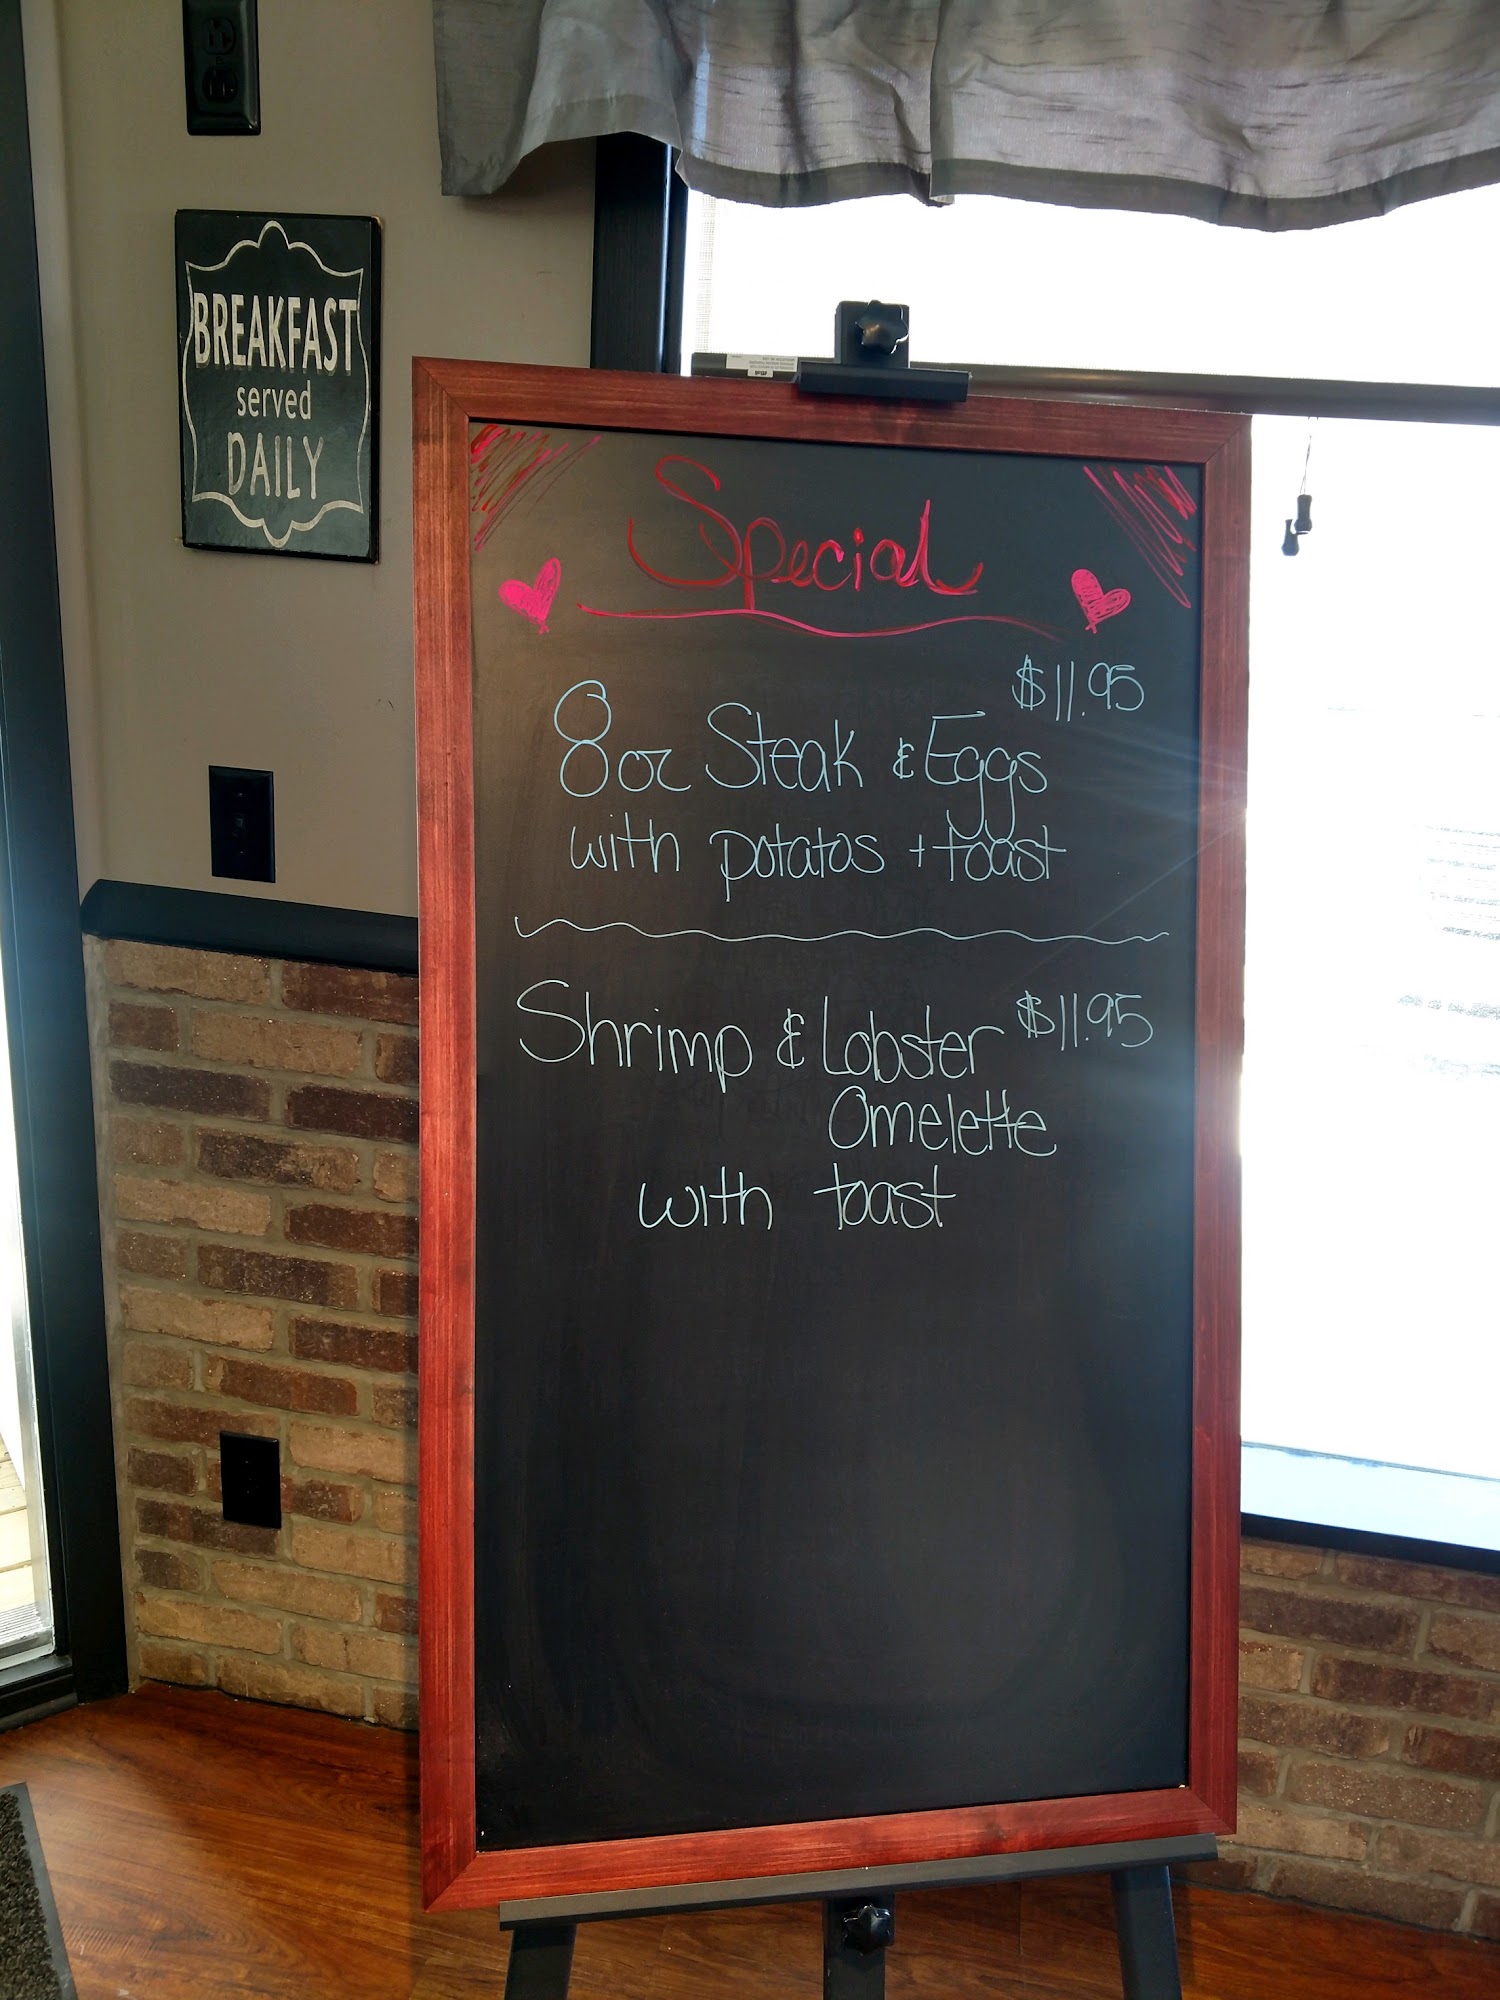 BREAKFAST
served
DAILY
Special
$11.95
8oz Steak & Eggs
with potatos + toast
Shrimp & Lobster $11.95
Omelette
with toast